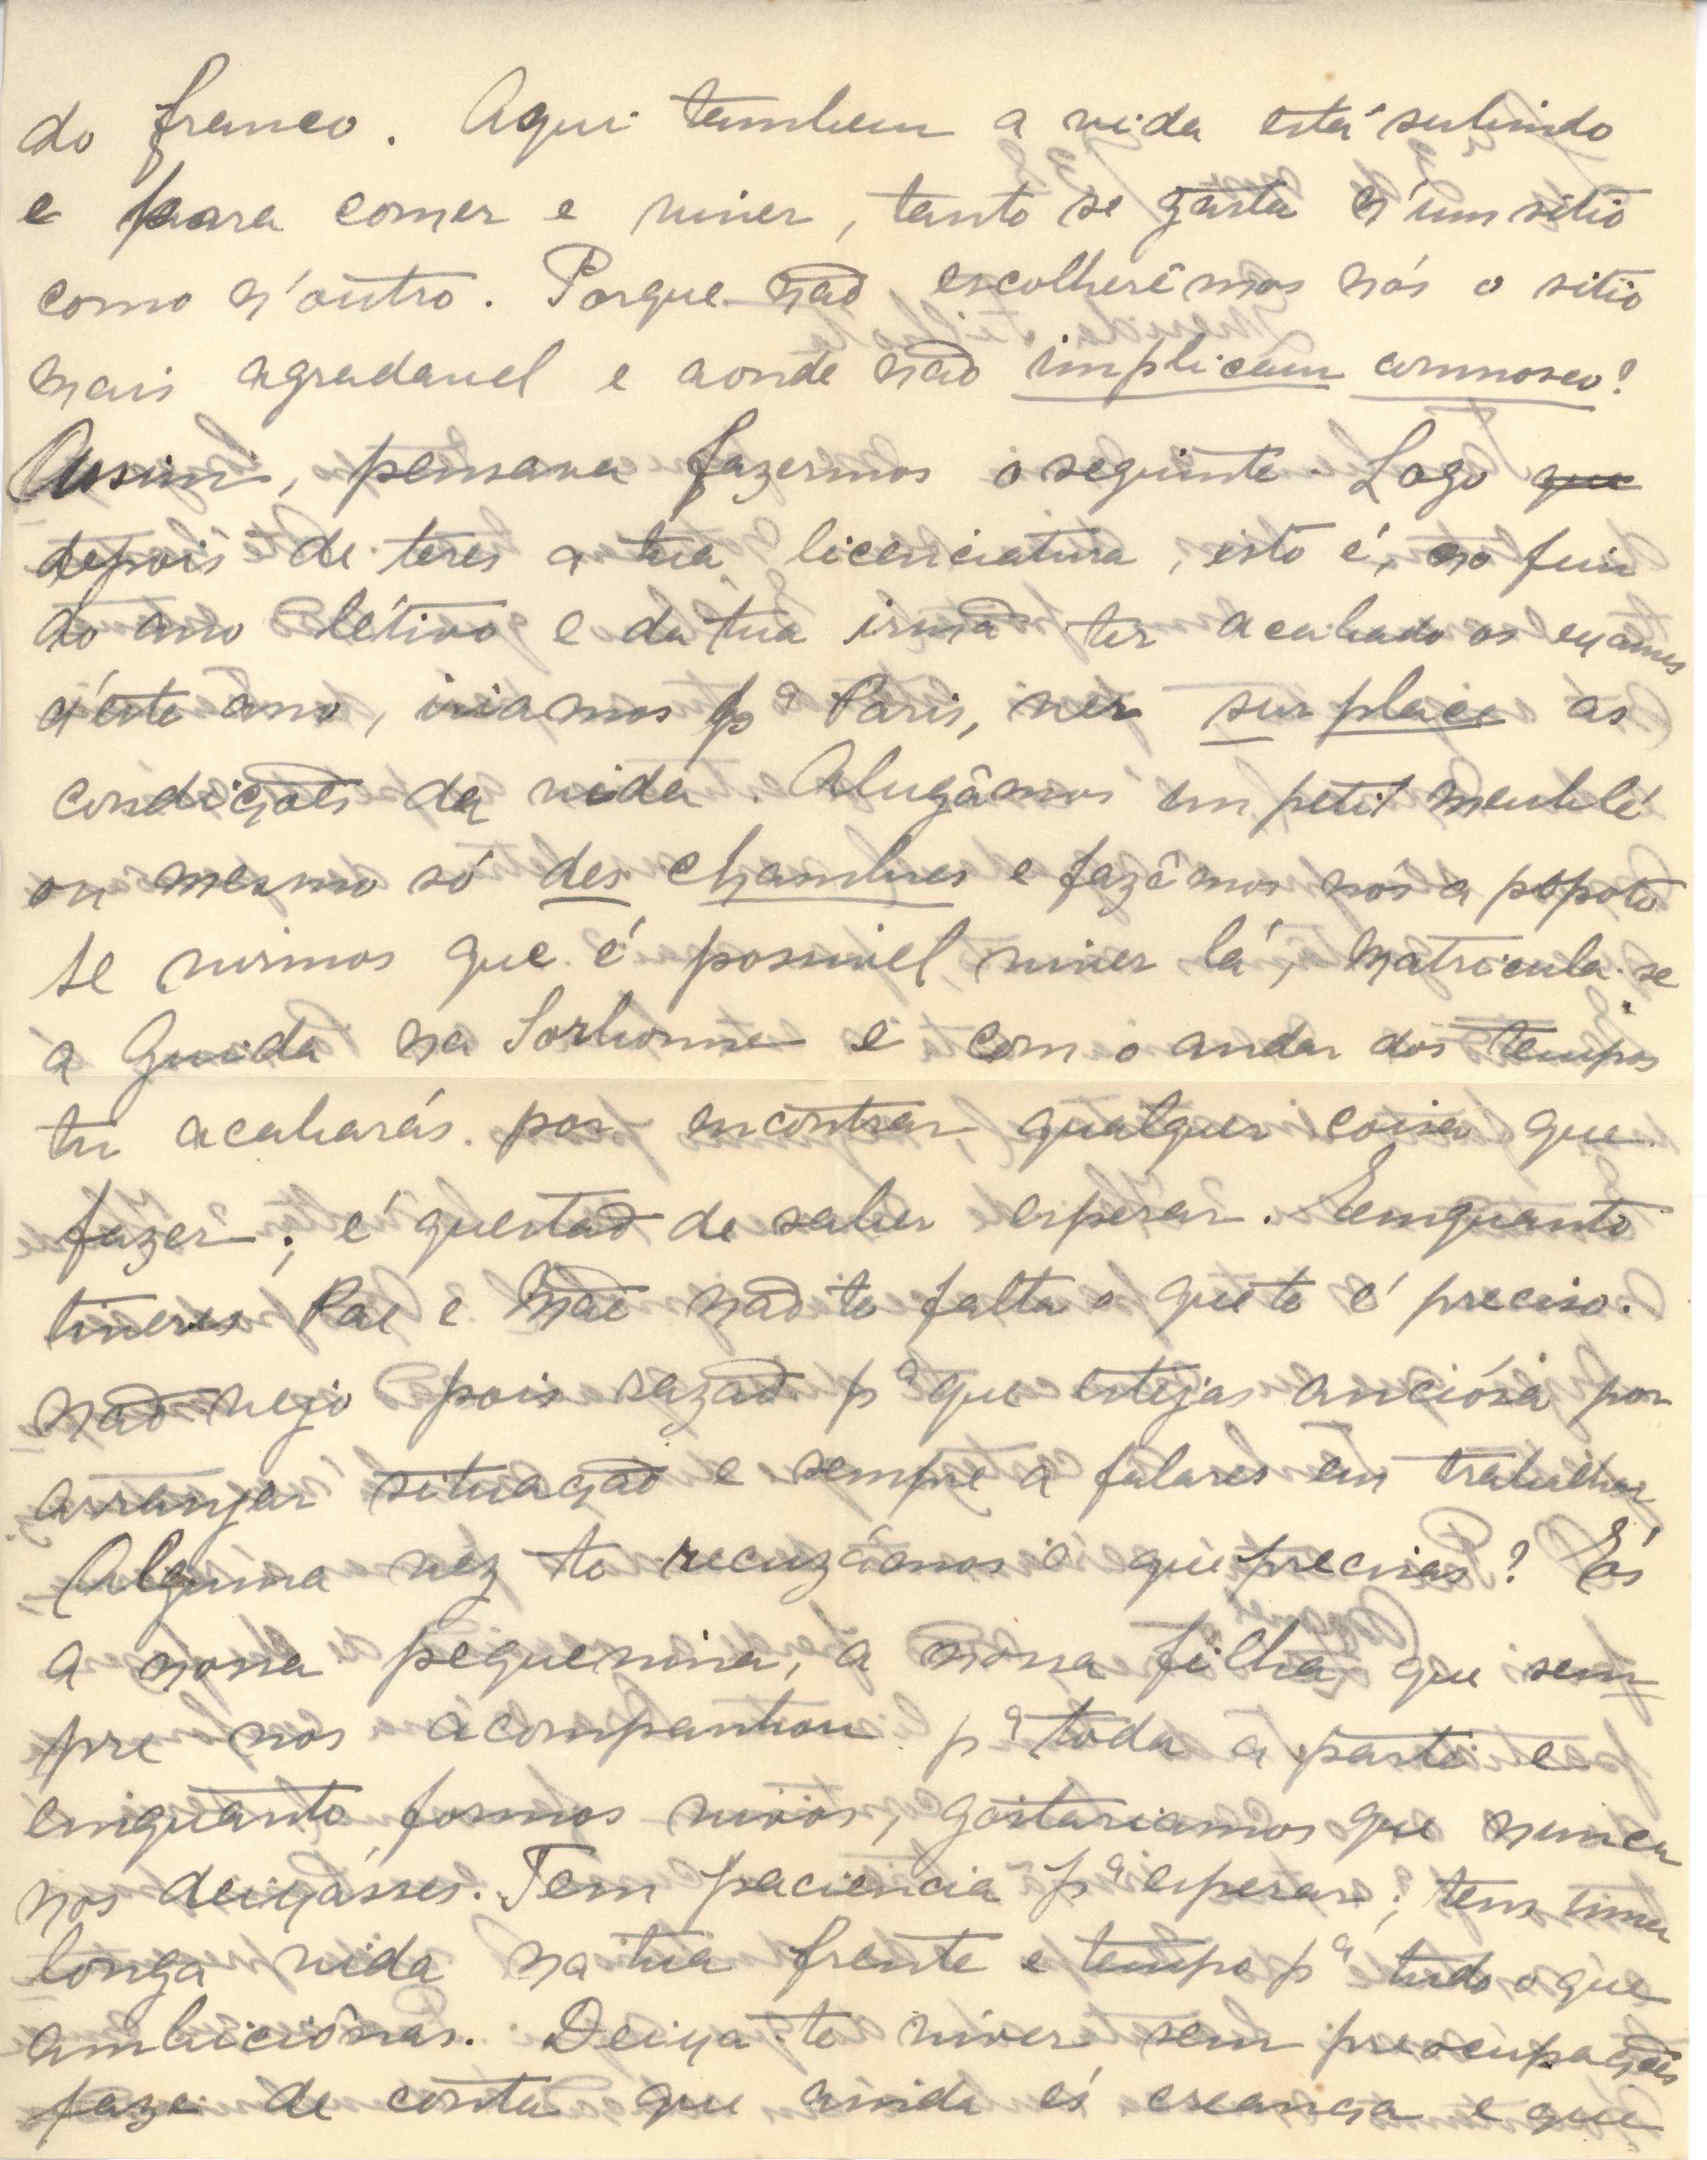 do franco. Aqui tambem a vida está subindo
e para comer e viver, tanto se gasta n'um sitio
como n'outro. Porque não escolherêmos nós o sitio
mais agradavel e aonde não implicam comnosco?
Assim, pensava fazermos o seguinte. Logo que
depois de teres a tua licenciatura, isto é, no fim
do ano létivo e da tua irmã ter acabado os exames
d'éste ano, iriamos pª Paris, ver sur place as
condições da vida. Alugâmos un petit meublé
ou mesmo só des chambres e fazêmos nós a popote
Se virmos que é possivel viver lá, matricula-se
a Guida na Sorbonne e com o andar dos tempos
tu acabarás por encontrar qualquer coisa que
fazer; é questão de saber esperar. Emquanto
tiveres Pae e Mãe não te falta o que te é preciso.
Não vejo pois razão pª que estejas anciósa por
arranjar situação e sempre a falares em trabalhar
Alguma vez te recuzámos o que precisas? És
a nossa pequenina, a nossa filha, que sem-
pre nos acompanhou pª toda a parte e
emquanto formos vivos, gostariamos que nunca
nos deixásses. Tem paciencia pª esperar; tens uma
longa vida na tua frente e tempo pª tudo o que
ambiciônas. Deixa-te viver sem preocupações
faze de conta que ainda és creança e que